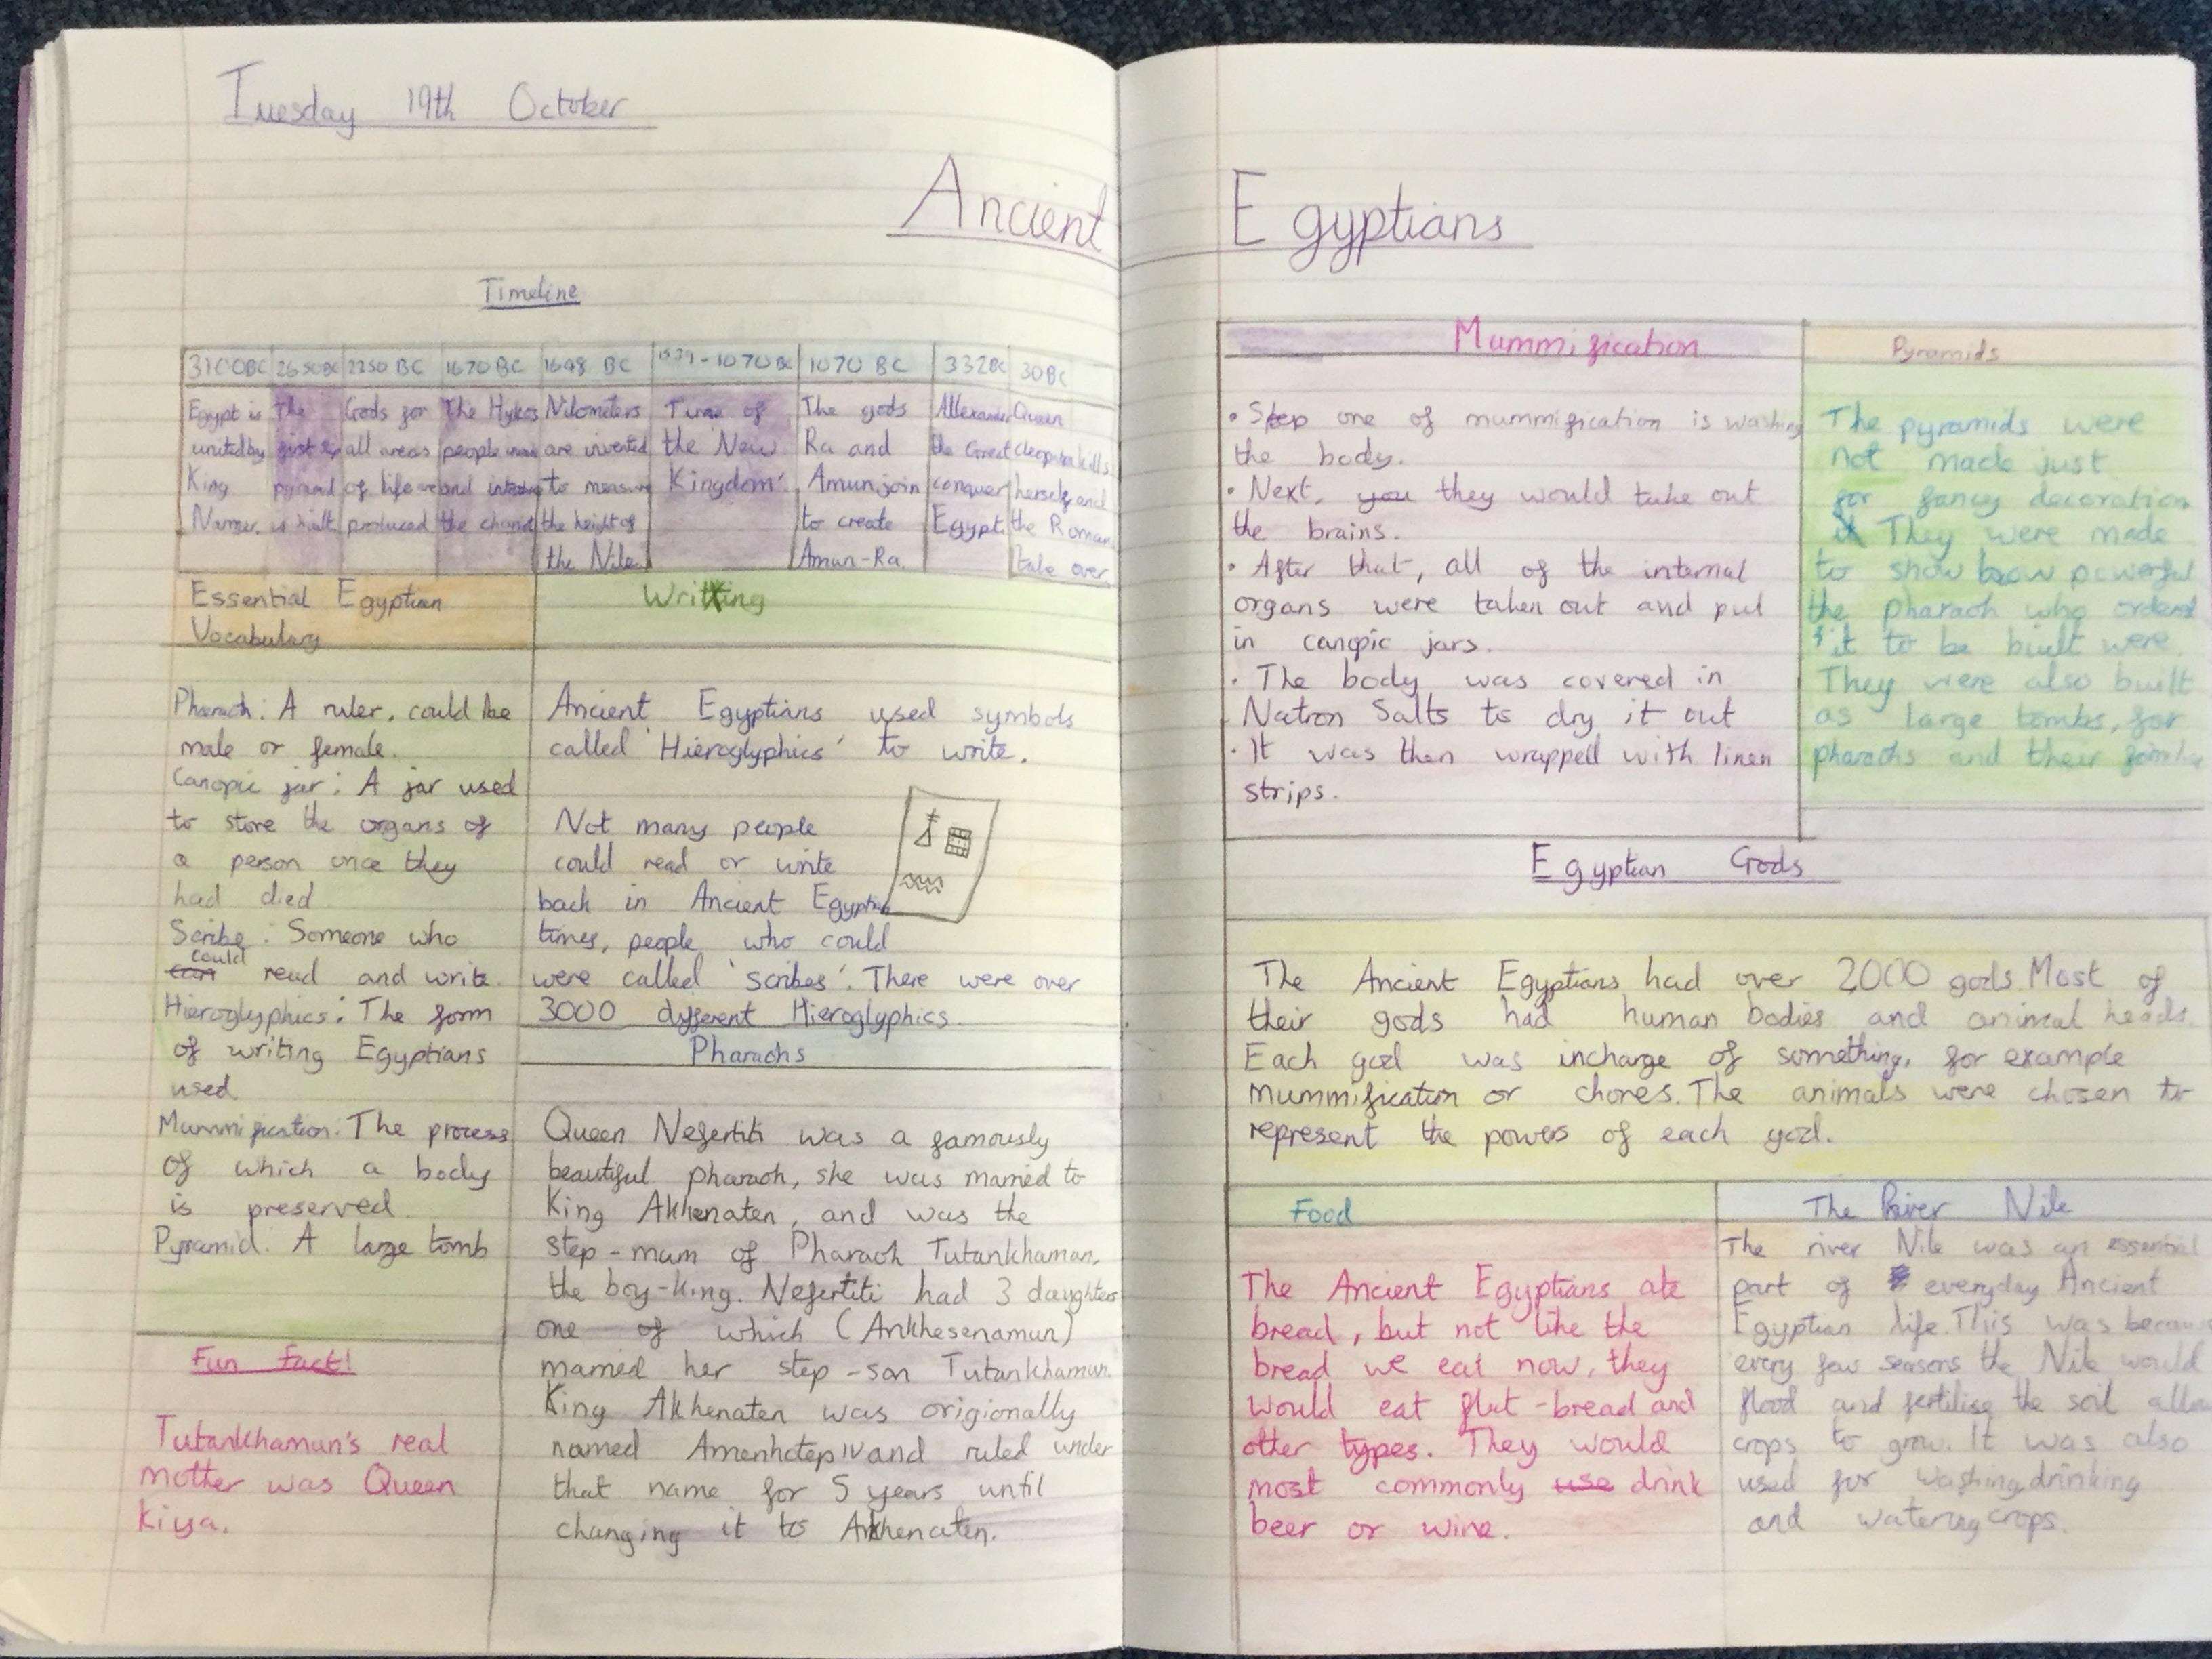 Tuesday 19th October
Ancient Egyptians
Timeline
3100BC
Egypt is
united by
King
Narmer.
2650BC
The
first step
pyramid
is built
2250 BC
Gods for
all areas
of life are
produced
1670 BC
The Hykos
people invade
and introduce
the chariot
1648 BC
Nilometers
are invented
to measure
the height of
the Nile
1539 - 1070 BC
Time of
the 'New
Kingdom'.
1070 BC
The gods
Ra and
Amun join
to create
Amun-Ra.
332BC
Allexander
the Great
conquers
Egypt.
30BC
Queen
Cleopatra kills
herself and
the Romans
take over.
Essential Egyptian
Vocabulary
Pharaoh: A ruler, could be
male or female.
Canopic jar: A jar used
to store the organs of
a person once they
had died
Scribe: Someone who
could
can read and write.
Hieroglyphics: The form
of writing Egyptians
used.
Mummification: The process
of which a body
is preserved.
Pyramid: A large tomb
Fun fact!
Tutankhamun's real
mother was Queen
Kiya.
Writing
Ancient Egyptians used symbols
called 'Hieroglyphics' to write.
Not many people
could read or write
back in Ancient Egyptian
times, people who could
were called 'scribes'. There were over
3000 different Hieroglyphics.
Pharaohs
Queen Nefertiti was a famously
beautiful pharaoh, she was married to
King Akhenaten, and was the
step-mum of Pharaoh Tutankhamun,
the boy-king. Nefertiti had 3 daughters
one of which (Ankhesenamun)
married her step-son Tutankhamun.
King Akhenaten was origionally
named Amenhotep IV and ruled under
that name for 5 years until
changing it to Akhenaten.
Mummification
• Step one of mummification is washing
the body.
• Next, you they would take out
the brains.
• After that, all of the internal
organs were taken out and put
in canopic jars.
• The body was covered in
Natron Salts to dry it out
• It was then wrapped with linen
strips.
Pyramids
The pyramids were
not made just
for fancy decoration
They were made
to show how powerful
the pharaoh who ordered
it to be built were.
They were also built
as large tombs, for
pharaohs and their families
Egyptian Gods
The Ancient Egyptians had over 2,000 gods. Most of
their gods had human bodies and animal heads.
Each god was incharge of something, for example
mummification or chores. The animals were chosen to
represent the powers of each god.
Food
The Ancient Egyptians ate
bread, but not like the
bread we eat now, they
would eat flat-bread and
other types. They would
most commonly use drink
beer or wine.
The River Nile
The river Nile was an essential
part of everyday Ancient
Egyptian life. This was because
every few seasons the Nile would
flood and fertilise the soil
crops to grow. It was also
used for washing, drinking
and watering crops.